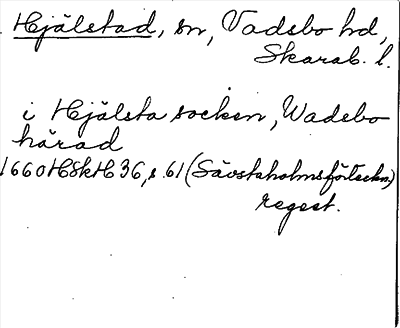 Hjälstad, sn, Vadsbo hd,
Skarab. l.
i Hjälsta socken, Wadsbo
härad
1660 HSkH 36, s. 61 (Sävstaholmsförteckn.)
regest.